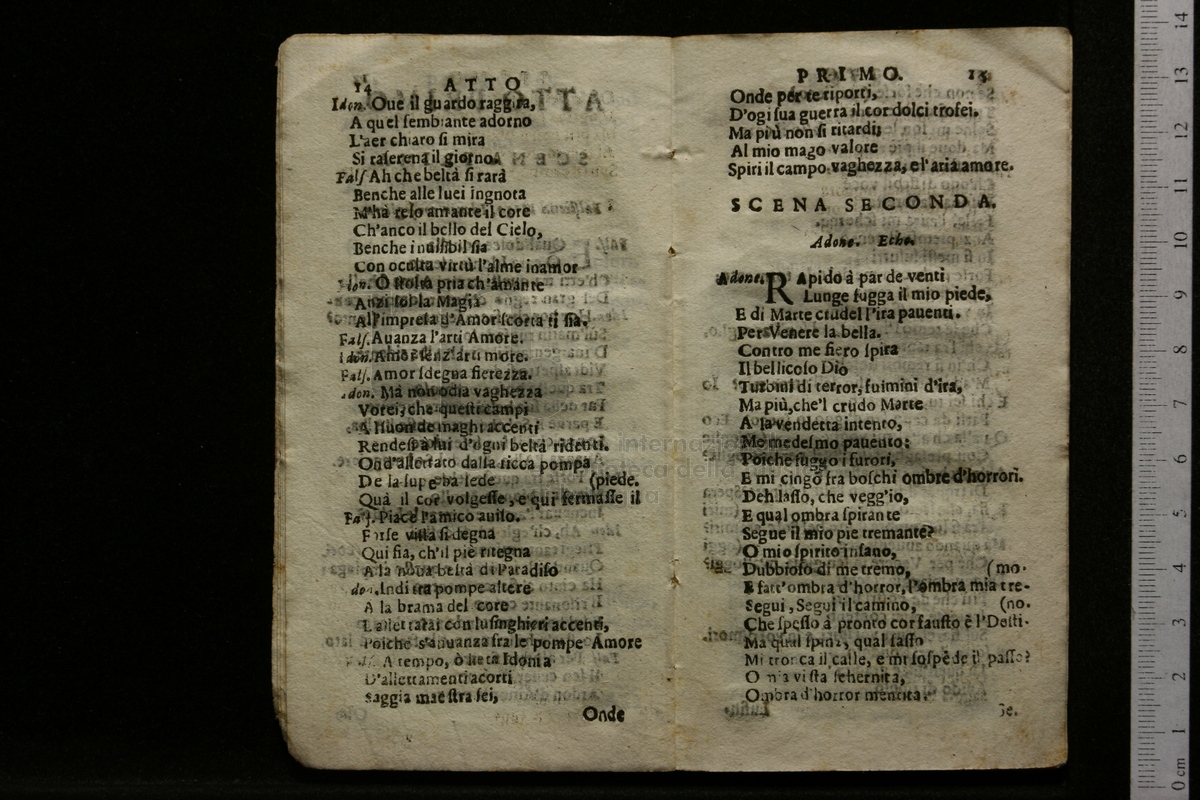 14 ATTO
Idon. Oue il guardo raggira,
A quel ſembiante adorno
L'aer chiaro ſi mira
Si raſerena il giorno.
Falſ Ah che beltà ſi rarà
Benche alle luei ingnota
M'hà reſo amante il core
Ch'anco il bello del Cielo,
Benche inuiſibil ſia
Con occulta virtù l'alme inamor
Idon. O ſtolta pria ch'amante
Anzi ſol la Magia
All'impreſa d'Amor ſcorta ti ſia.
Falſ. Auanza l'arti Amore.
Idon. Amor ſenz'arti more.
Falſ. Amor ſdegna fierezza.
Idon. Mà non odia vaghezza
Vorei, che queſti campi
A ſuon de maghi accenti
Rendeſſ à lui d'ogni beltà ridenti.
Ond'allettato dalla ricca pompa
De la ſuperba ſede (piede.
Quà il cor volgeſſe, e qui fermaſſe il
Falſ. Piace l'amico auiſo.
Forſe viſta ſi degna
Qui fia, ch'il piè ritegna
A la noua beltà di Paradiſo
don. Indi tra pompe altere
A la brama del core
L'allettarai con luſinghieri accenti,
Poiche s'auuanza fra le pompe Amore
A tempo, ò lieta Idonia
D'allettamenti acorti
Saggia maeſtra ſei,
Onde
PRIMO. 15
Onde per te riporti,
D'ogi ſua guerra il cor dolci trofei.
Ma più non ſi ritardi;
Al mio mago valore
Spiri il campo vaghezza, e l'aria amore.
SCENA SECONDA.
Adone. Echo.
Adone. RApido à par de venti
Lunge fugga il mio piede,
E di Marte crudel l'ira pauenti.
Per Venere la bella.
Contro me fiero ſpira
Il bellicoſo Dio
Turbini di terror, fulmini d'ira,
Ma più, che'l crudo Marte
A la vendetta intento,
Me medeſmo pauento:
Poiche fuggo i furori,
E mi cingo fra boſchi ombre d'horrori.
Deh laſſo, che vegg'io,
E qual ombra ſpirante
Segue il mio pie tremante?
O mio ſpirito inſano,
Dubbioſo di me tremo, (mo.
E fatt'ombra d'horror, l'ombra mia tre-
Segui, Segui il camino, (no.
Che ſpeſſo à pronto cor fauſto è l'Deſti-
Ma qual ſpina, qual ſaſſo
Mi tronca il calle, e mi ſoſpède il paſſo?
O mia viſta ſchernita,
Ombra d'horror mentita.
Se.
0 cm 1 2 3 4 5 6 7 8 9 10 11 12 13 14